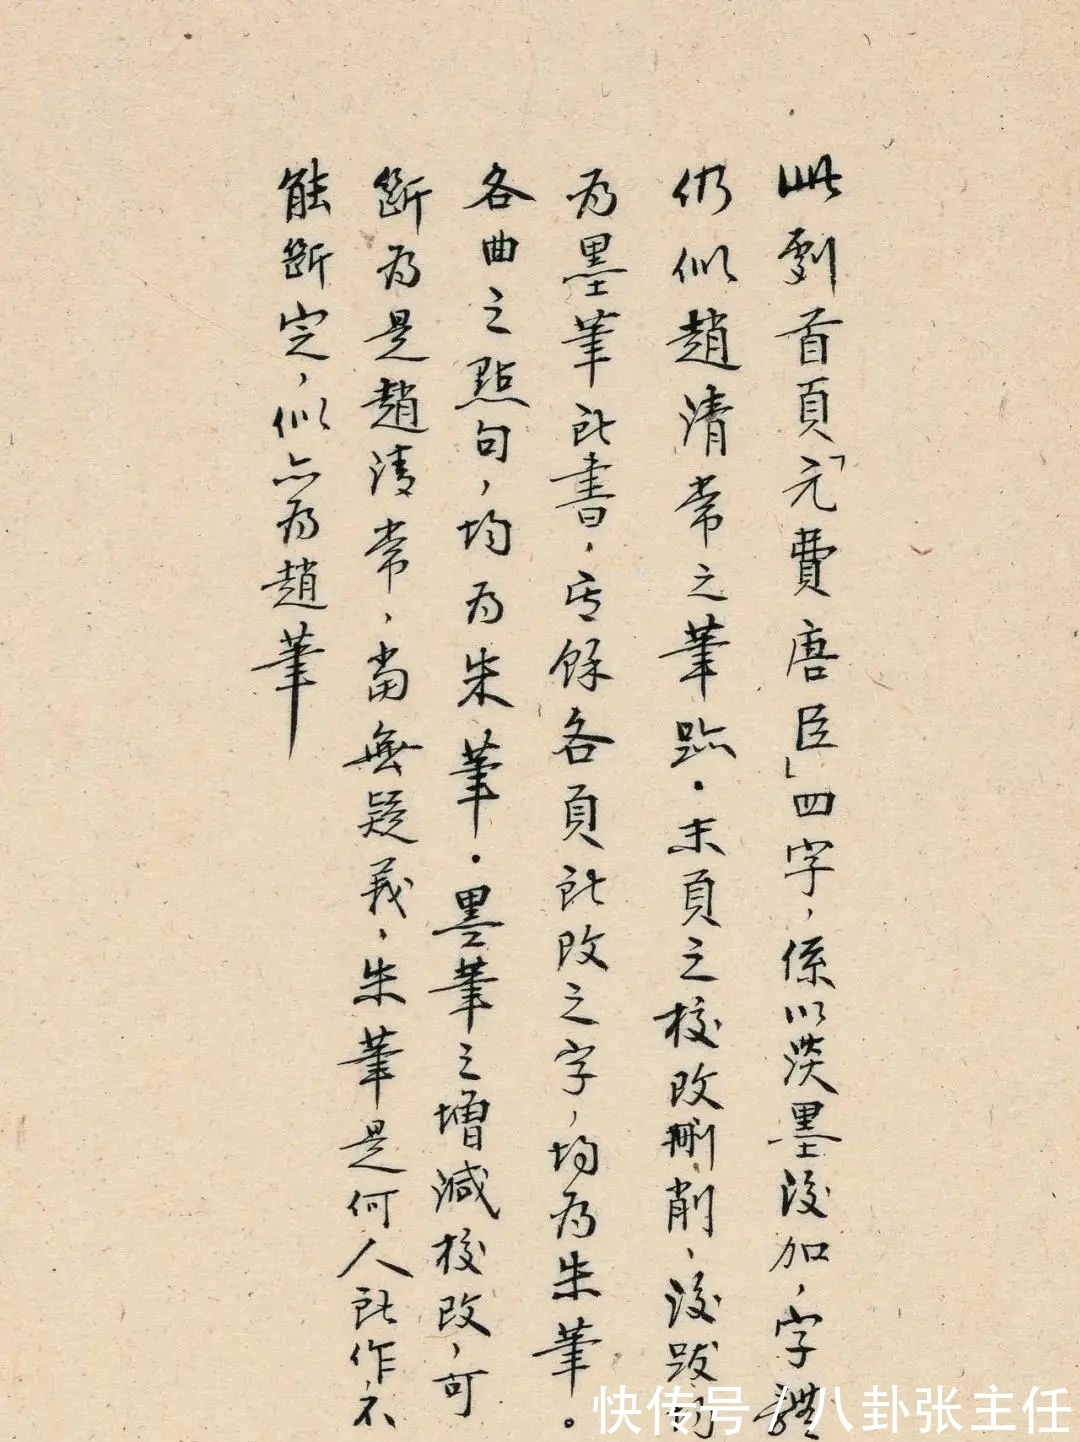 此劇首頁「元費唐臣」四字，係以淡墨後加，字體
仍似趙清常之筆跡．末頁之校改刪削，後跋均
為墨筆所書，其餘各頁所改之字，均為朱筆。
各曲之點句，均為朱筆．墨筆之增減校改，可
斷為是趙清常，當無疑義，朱筆是何人所作不
能斷定，似亦為趙筆
快传号 / 八卦张主任